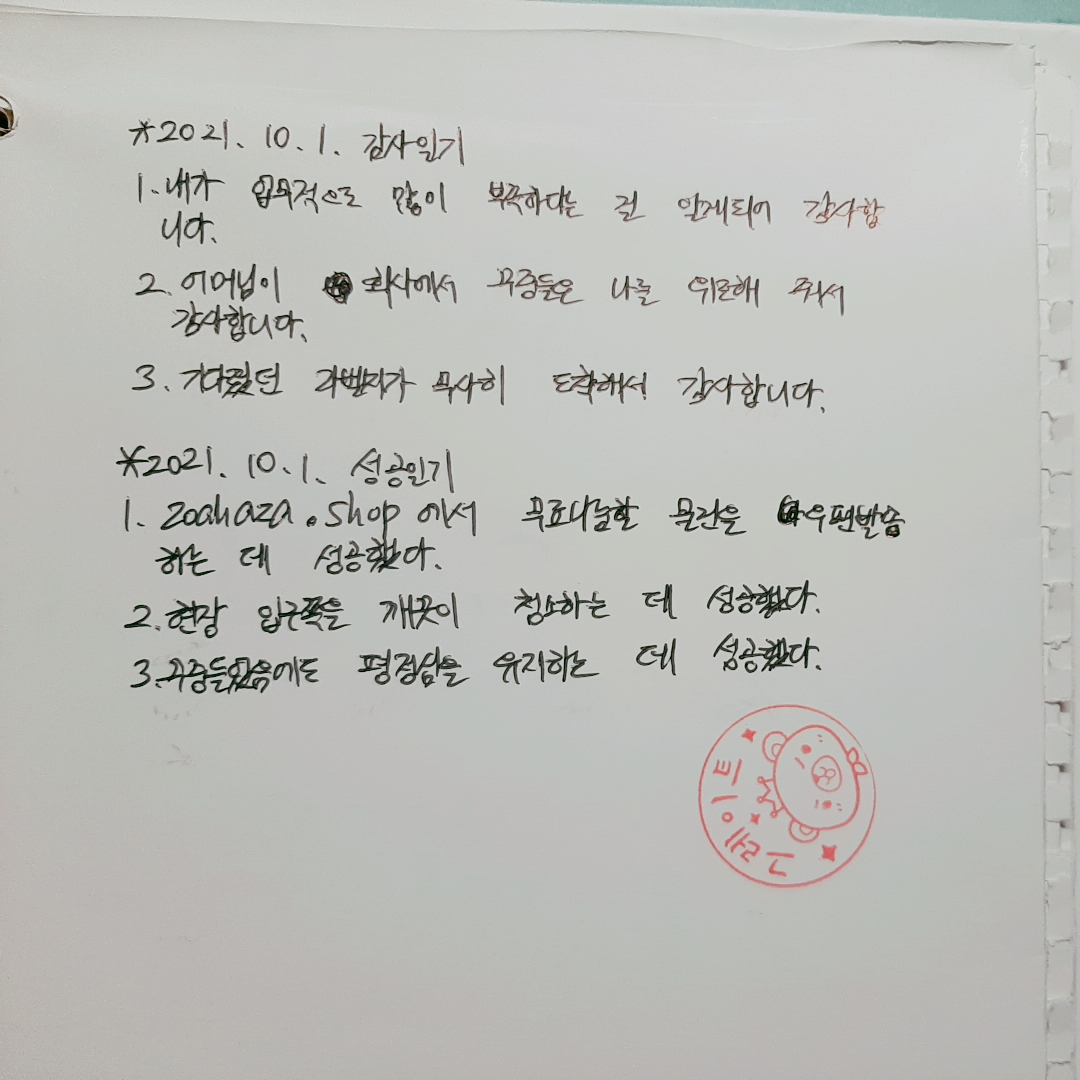 *2021. 10. 1. 감사일기
1. 내가 업무적으로 많이 부족하다는 걸 알게되어 감사합
니다.
2. 어머님이 회사에서 꾸중들은 나를 위로해 줘서
감사합니다.
3. 기다렸던 라벤지가 무사히 도착해서 감사합니다.
*2021. 10. 1. 성공일기
1. zoahaza.shop에서 무료나눔할 물건을 우편발송
하는 데 성공했다.
2. 현장 입구쪽을 깨끗이 청소하는 데 성공했다.
3. 꾸중들었음에도 평정심을 유지하는 데 성공했다.
그뤠이트